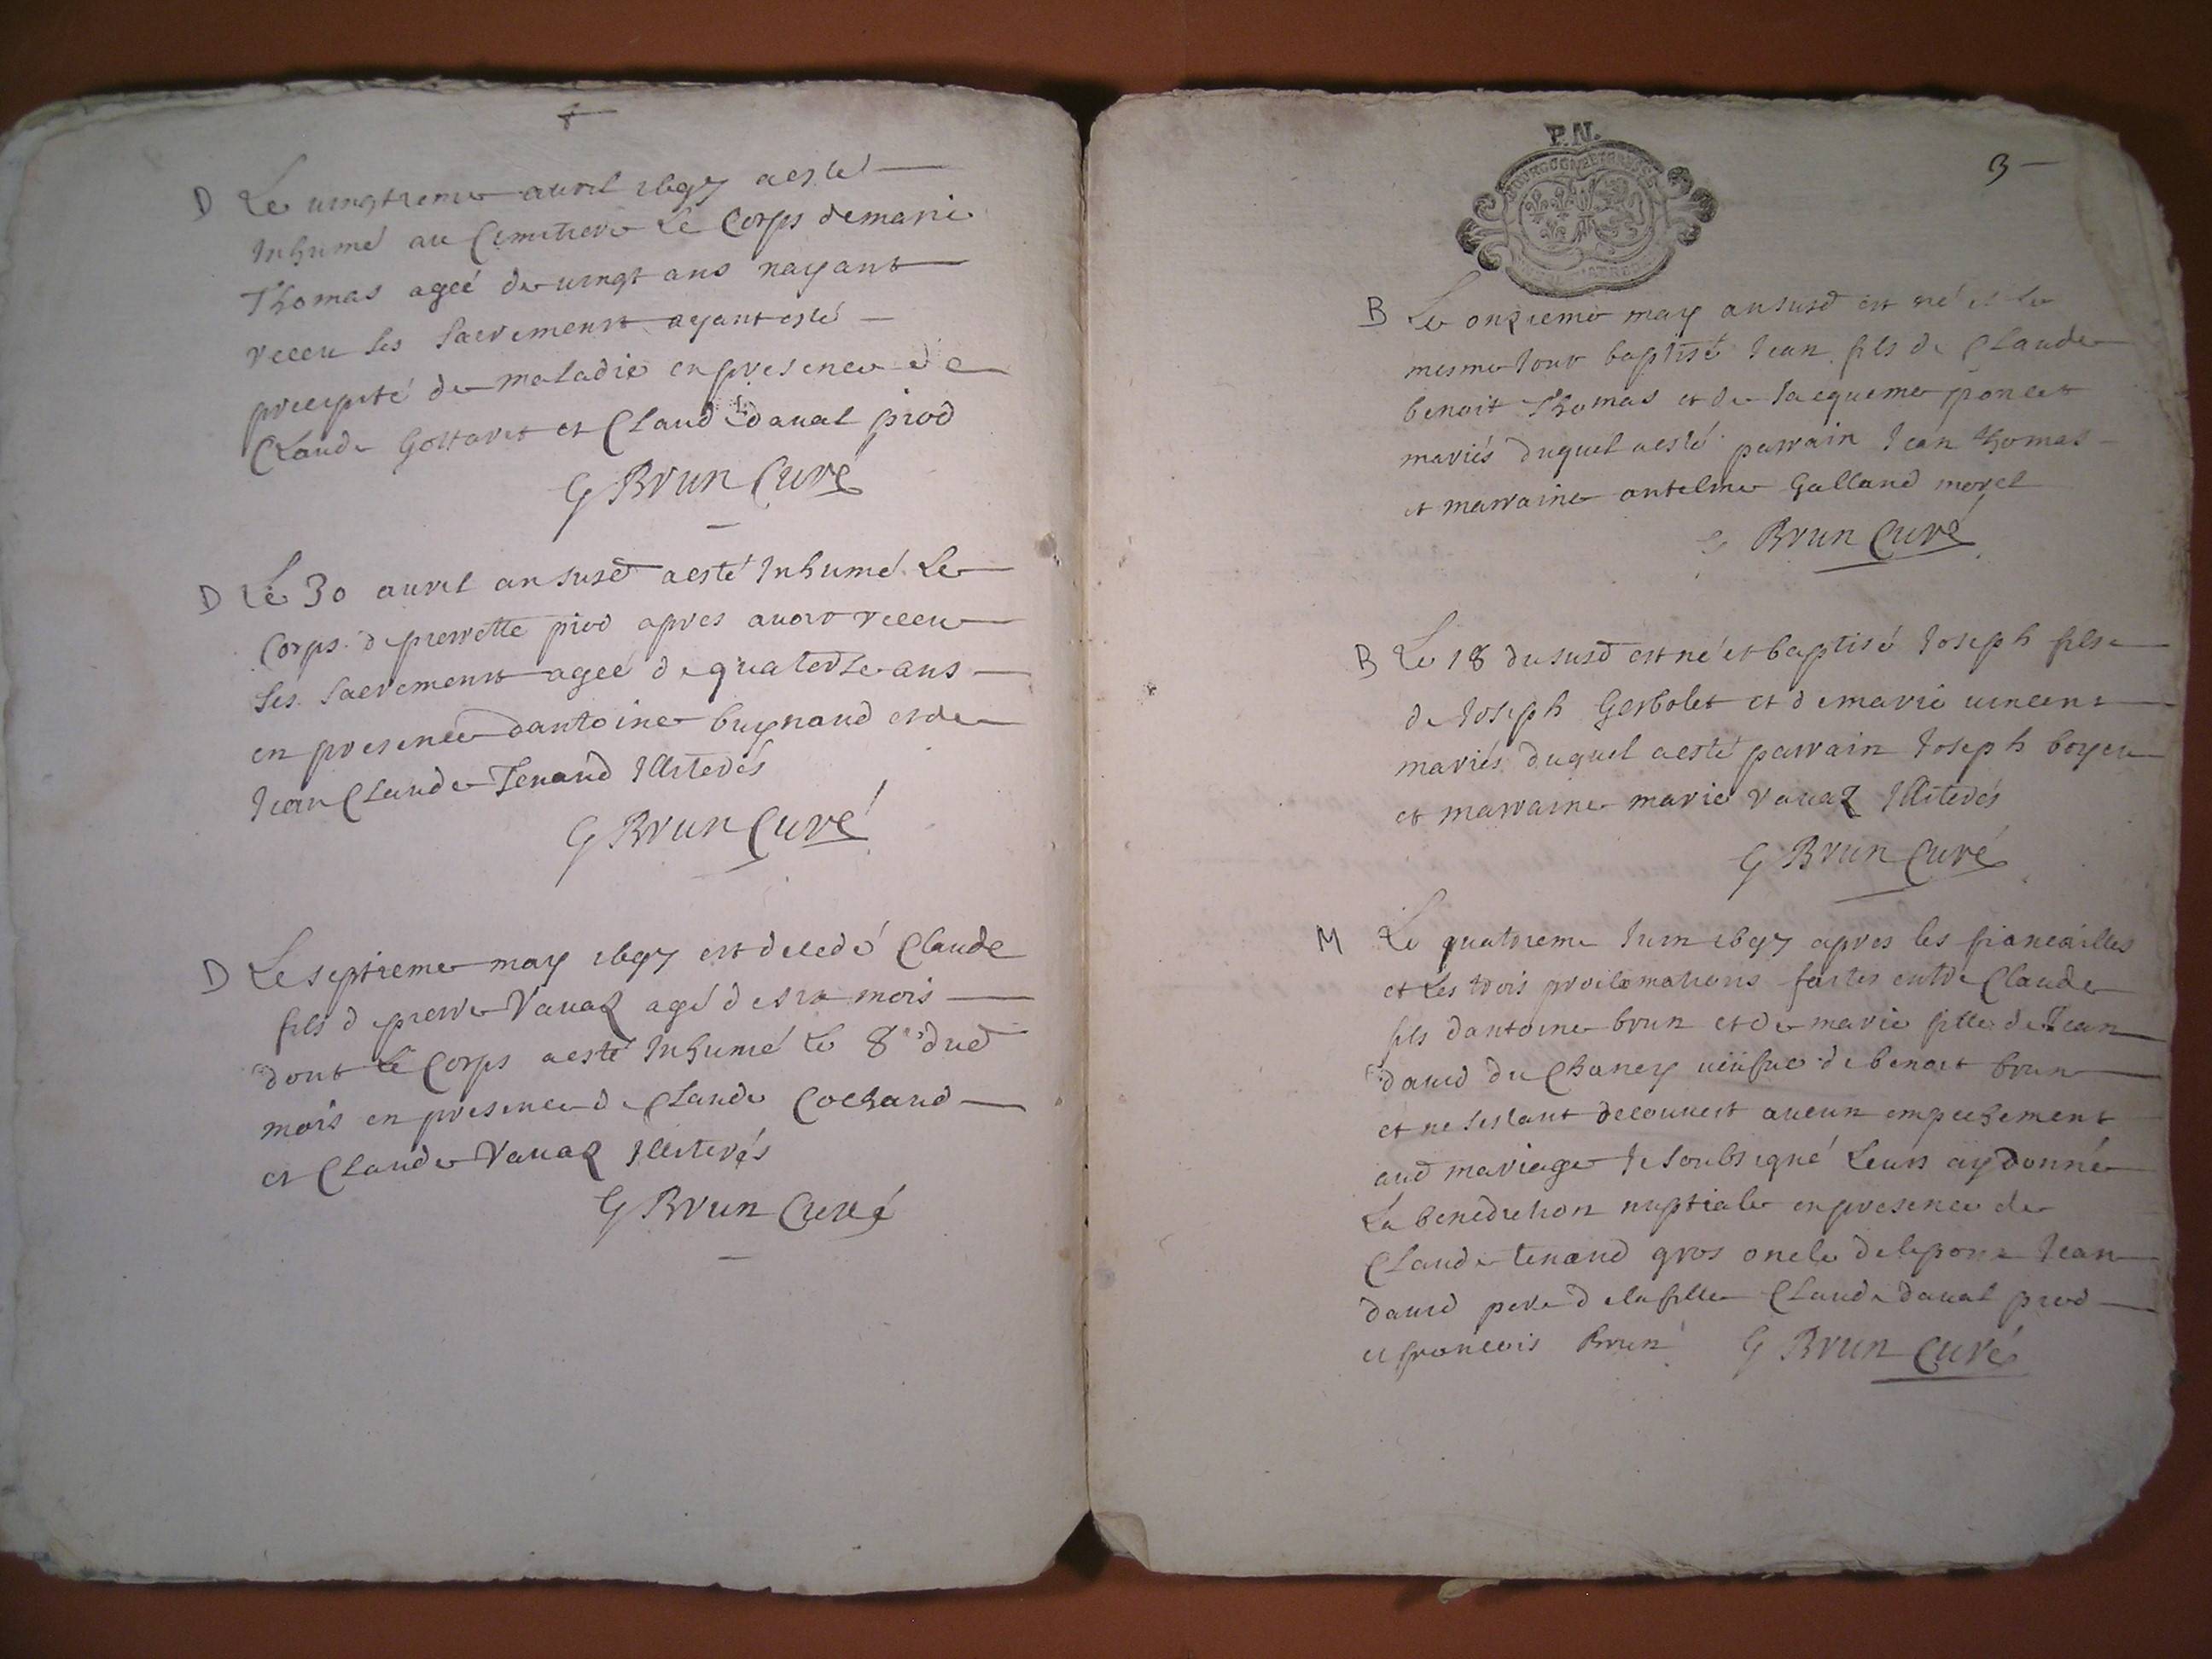 D Le vingtieme avril 1697 a esté
Inhumé au Cimitiere Le Corps de marie
Thomas ageé de vingt ans nayant
receu les sacrements ayant esté
precipité de maladie en presence de
Claude Gottaret et Claude daval piod
G Brun Curé
D Le 30 avril an susd a esté Inhumé Le
Corps de pierrette piod apres avoir receu
les sacrements ageé de quatorse ans
en presence dantoine buynand et de
Jean Claude Tenand Illiterés
G Brun Curé
D Le septieme may 1697 est decedé Claude
fils de pierre Vavaz agé de six mois
dont Le Corps a esté Inhumé Le 8e dud
mois en presence de Claude Cochand
et Claude Vavaz Illiterés
G Brun Curé
P.N.
3
B Le onzieme may an susd est né et le
mesme Jour baptisé Jean fils de Claude
benoit Thomas et de Jacqueme poncet
mariés duquel a esté parrain Jean thomas
et marraine antelme Galland morel
G Brun Curé
B Le 18 du susd est né et baptisé Joseph fils
de Joseph Gerbolet et de marie vincent
mariés duquel a esté parrain Joseph boyer
et marraine marie Vavaz Illiterés
G Brun Curé
M Le quatrieme Juin 1697 apres les fiancailles
et Les trois proclamations faites entre Claude
fils dantoine brun et de marie fille de Jean
david du Chaney veufue de benoit brun
et ne sestant decouvert aucun empechement
aud mariage Je soubsigné Leurs ay donné
La benediction nuptiale en presence de
Claude tenand gros oncle de lepoux Jean
david pere de la fille Claude daval piod
et francois Brun G Brun Curé